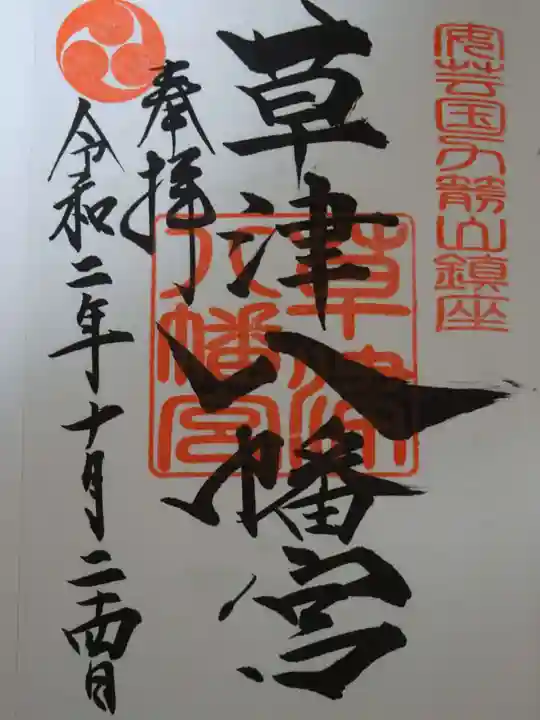 安芸国力箭山鎮座
草津八幡宮
草津
八幡宮
奉拝
令和二年十月二十四日